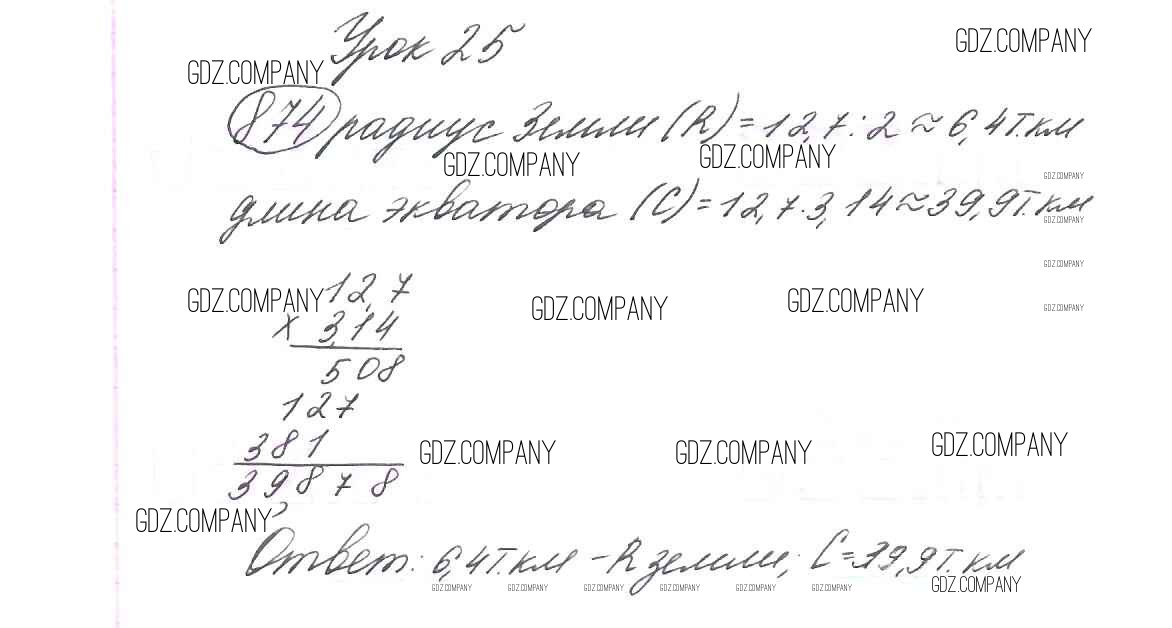 Урок 25
GDZ.COMPANY
GDZ.COMPANY
874 радиус Земли (R) = 12,7 : 2 ≈ 6,4 т.км
GDZ.COMPANY GDZ.COMPANY
GDZ.COMPANY
длина экватора (C) = 12,7 · 3,14 ≈ 39,9 т.км
GDZ.COMPANY
GDZ.COMPANY
GDZ.COMPANY 12,7 GDZ.COMPANY GDZ.COMPANY GDZ.COMPANY
x 3,14
508
127
381 GDZ.COMPANY GDZ.COMPANY GDZ.COMPANY
39,878
GDZ.COMPANY
Ответ: 6,4 т.км – R земли; C = 39,9 т. км
GDZ.COMPANY GDZ.COMPANY GDZ.COMPANY GDZ.COMPANY GDZ.COMPANY GDZ.COMPANY GDZ.COMPANY